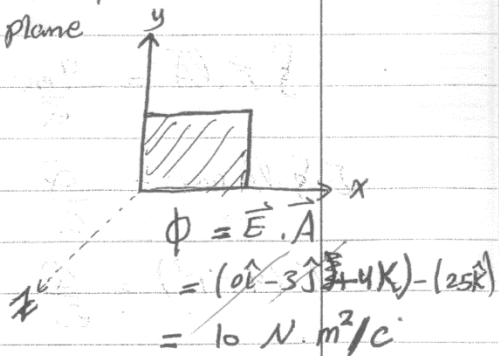 plane
y
x
z
Φ = E⃗ . A⃗
= (0î - 3ĵ + 4k) - (25k̂)
= 10 N. m²/c